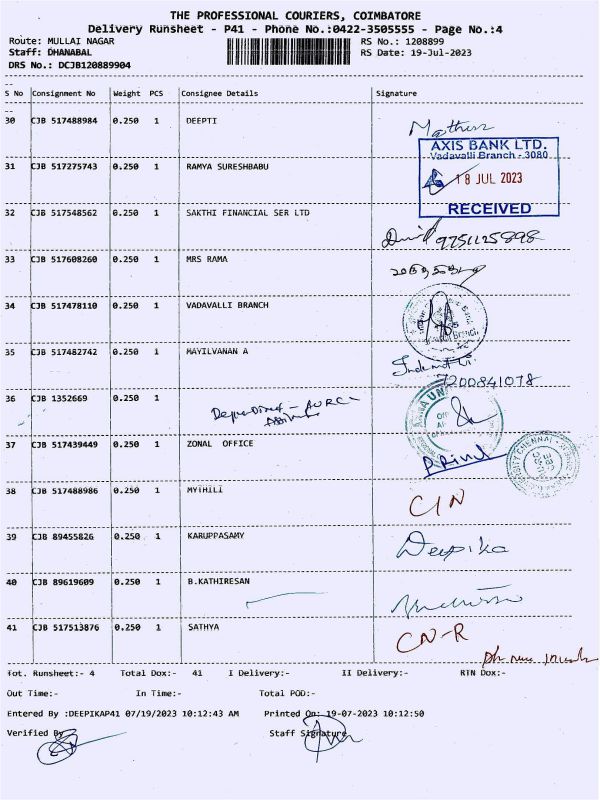 THE PROFESSIONAL COURIERS, COIMBATORE
Delivery Runsheet - P41 - Phone No.:0422-3505555 - Page No.:4
Route: MULLAI NAGAR RS No.: 1208899
Staff: DHANABAL RS Date: 19-Jul-2023
DRS No.: DCJB120889904
S No Consignment No Weight PCS Consignee Details Signature
30 CJB 517488984 0.250 1 DEEPTI
AXIS BANK LTD.
Vadavalli Branch - 3080
31 CJB 517275743 0.250 1 RAMYA SURESHBABU
18 JUL 2023
RECEIVED
32 CJB 517548562 0.250 1 SAKTHI FINANCIAL SER LTD
9751125898
33 CJB 517608260 0.250 1 MRS RAMA
34 CJB 517478110 0.250 1 VADAVALLI BRANCH
35 CJB 517482742 0.250 1 MAYILVANAN A
7200841078
36 CJB 1352669 0.250 1
37 CJB 517439449 0.250 1 ZONAL OFFICE
38 CJB 517488986 0.250 1 MYTHILI
CIN
39 CJB 89455826 0.250 1 KARUPPASAMY
Deepika
40 CJB 89619609 0.250 1 B.KATHIRESAN
41 CJB 517513876 0.250 1 SATHYA
CN-R
Tot. Runsheet:- 4 Total Dox:- 41 I Delivery:- II Delivery:- RTN Dox:-
Out Time:- In Time:- Total POD:-
Entered By :DEEPIKAP41 07/19/2023 10:12:43 AM Printed On: 19-07-2023 10:12:50
Verified By Staff Signature